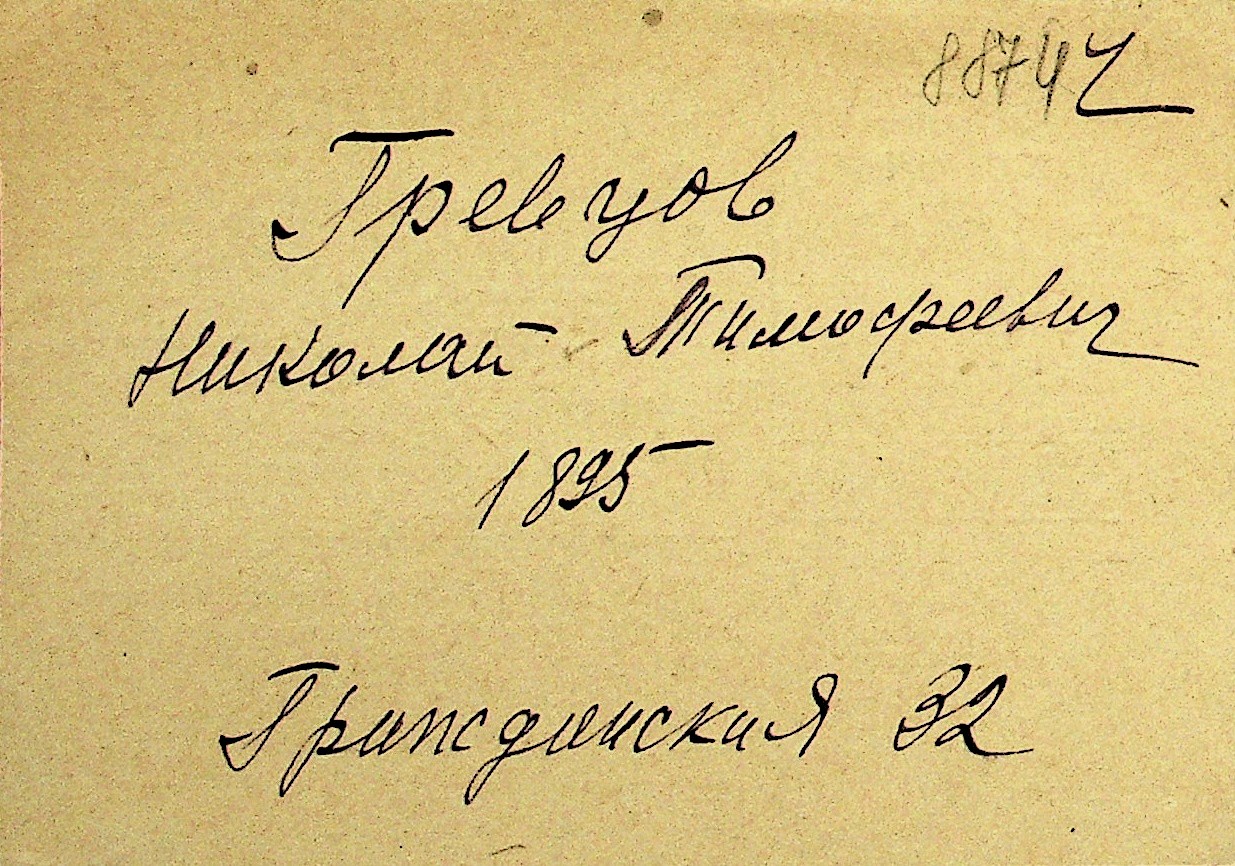 8874 ч
Гревцов
Николай Тимофеевич
1895
Гражданская 32